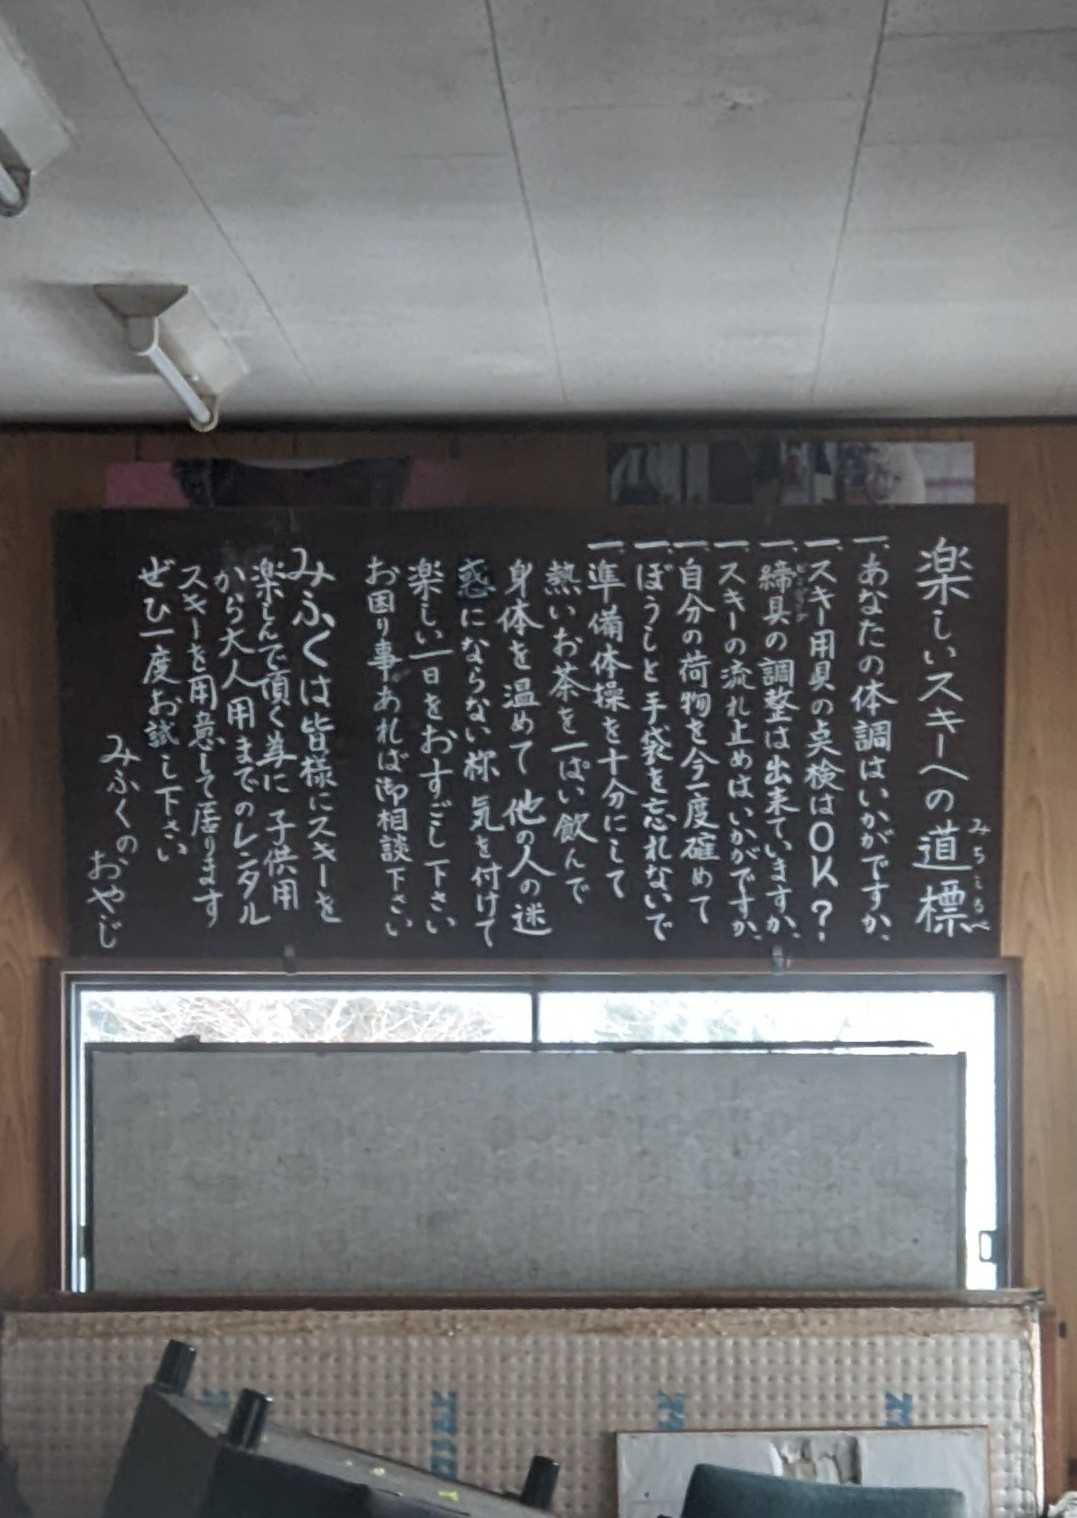 楽しいスキーへの道標
みちしるべ
一、あなたの体調はいかがですか、
一、スキー用具の点検はOK?
一、締具の調整は出来ていますか、
一、スキーの流れ止めはいかがですか、
一、自分の荷物を今一度確めて
一、ぼうしと手袋を忘れないで
一、準備体操を十分にして
熱いお茶を一ぱい飲んで
身体を温めて他の人の迷
惑にならない様気を付けて
楽しい一日をおすごし下さい
お困り事あれば御相談下さい
みふくは皆様にスキーを
楽しんで頂く為に子供用
から大人用までのレンタル
スキーを用意して居ります
ぜひ一度お試し下さい
みふくのおやじ